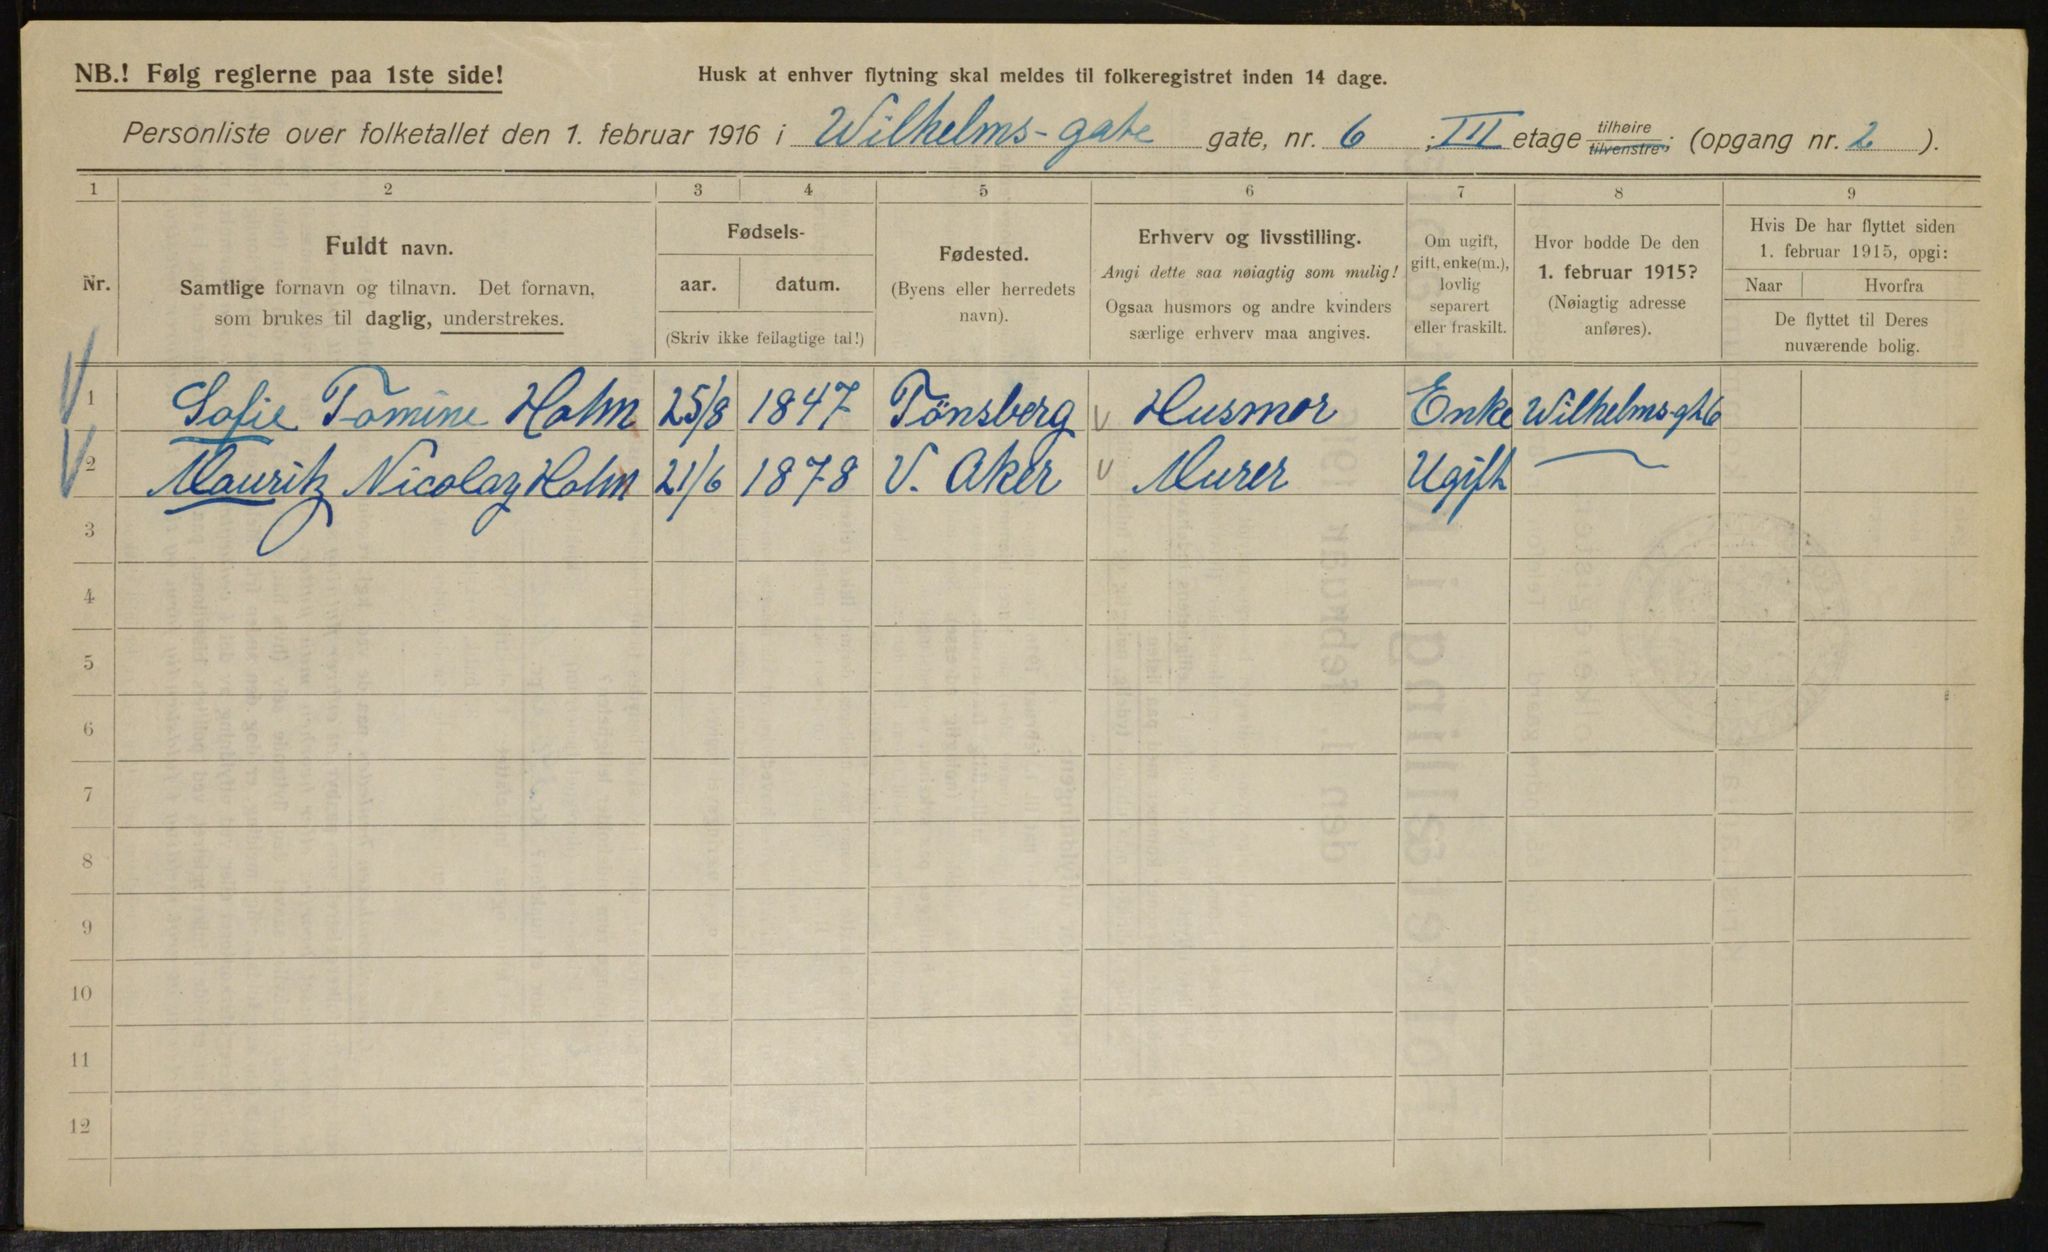 NB.! Følg reglerne paa 1ste side!
Husk at enhver flytning skal meldes til folkeregistret inden 14 dage.
Personliste over folketallet den 1. februar 1916 i Wilhelms-gate gate, nr. 6 ; III etage tilhøire tilvenstre; (opgang nr. 2 ).
1 2 3 4 5 6 7 8 9
Nr.
Fuldt navn.
Samtlige fornavn og tilnavn. Det fornavn,
som brukes til daglig, understrekes.
Fødsels-
aar. datum.
(Skriv ikke feilagtige tal!)
Fødested.
(Byens eller herredets
navn).
Erhverv og livsstilling.
Angi dette saa nøiagtig som mulig!
Ogsaa husmors og andre kvinders
særlige erhverv maa angives.
Om ugift,
gift, enke(m.),
lovlig
separert
eller fraskilt.
Hvor bodde De den
1. februar 1915?
(Nøiagtig adresse
anføres).
Hvis De har flyttet siden
1. februar 1915, opgi:
Naar Hvorfra
De flyttet til Deres
nuværende bolig.
1 Sofie Tomine Holm 25/8 1847 Tönsberg Husmor Enke Wilhelms-gt 6
2 Mauritz Nicolay Holm 21/6 1878 V. Aker Murer Ugift
3
4
5
6
7
8
9
10
11
12